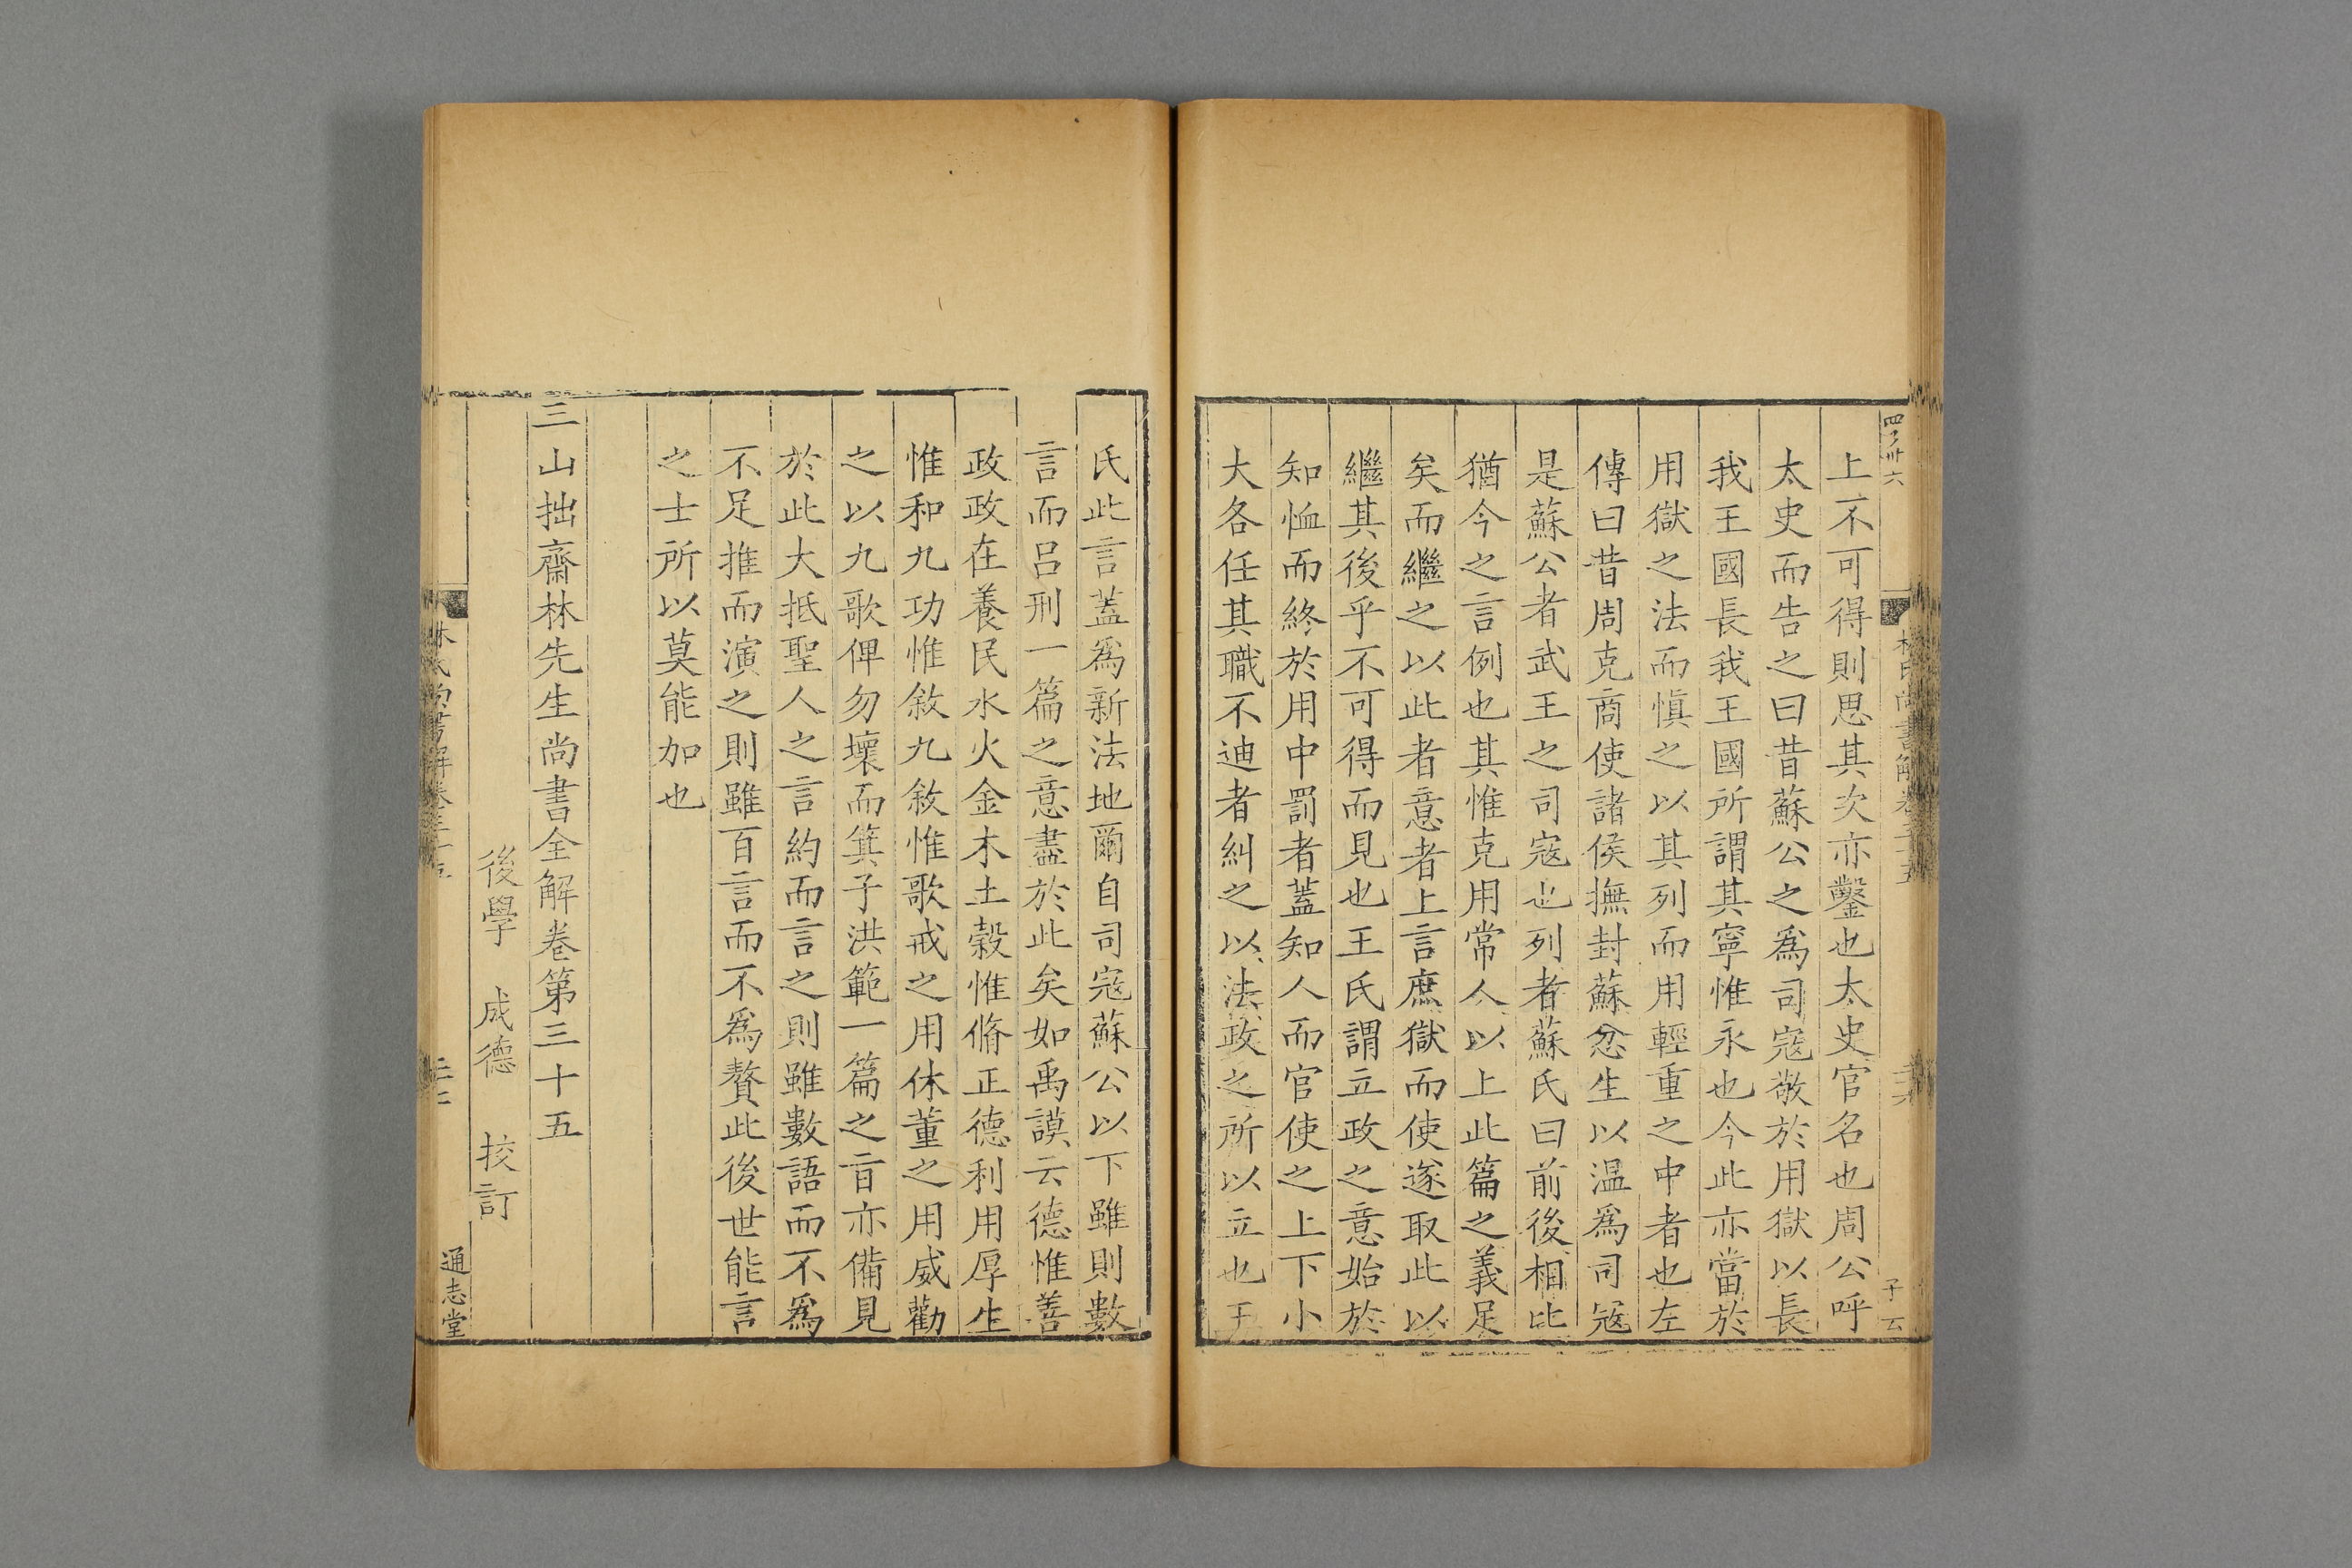 四
六
上不可得則思其次亦鑿也太史官名也周公呼
太史而告之曰昔蘇公之爲司寇敬於用獄以長
我王國長我王國所謂其寧惟永也今此亦當於
用獄之法而慎之以其列而用輕重之中者也左
傳曰昔周克商使諸侯撫封蘇忿生以温爲司寇
是蘇公者武王之司寇也列者蘇氏曰前後相比
猶今之言例也其惟克用常人以上此篇之義足
矣而繼之以此者意者上言庶獄而使遂取此以
繼其後乎不可得而見也王氏謂立政之意始於
知恤而終於用中罰者蓋知人而官使之上下小
大各任其職不迪者糾之以法政之所以立也王
氏此言蓋爲新法地爾自司寇蘇公以下雖則數
言而吕刑一篇之意盡於此矣如禹謨云德惟善
政政在養民水火金木土榖惟脩正德利用厚生
惟和九功惟敘九敘惟歌戒之用休董之用威勸
之以九歌俾勿壞而箕子洪範一篇之旨亦備見
於此大抵聖人之言約而言之則雖數語而不爲
不足推而演之則雖百言而不爲贅此後世能言
之士所以莫能加也
三山拙齋林先生尚書全解卷第三十五
後學　成德　挍訂
林氏尚書解卷三十五
通志堂